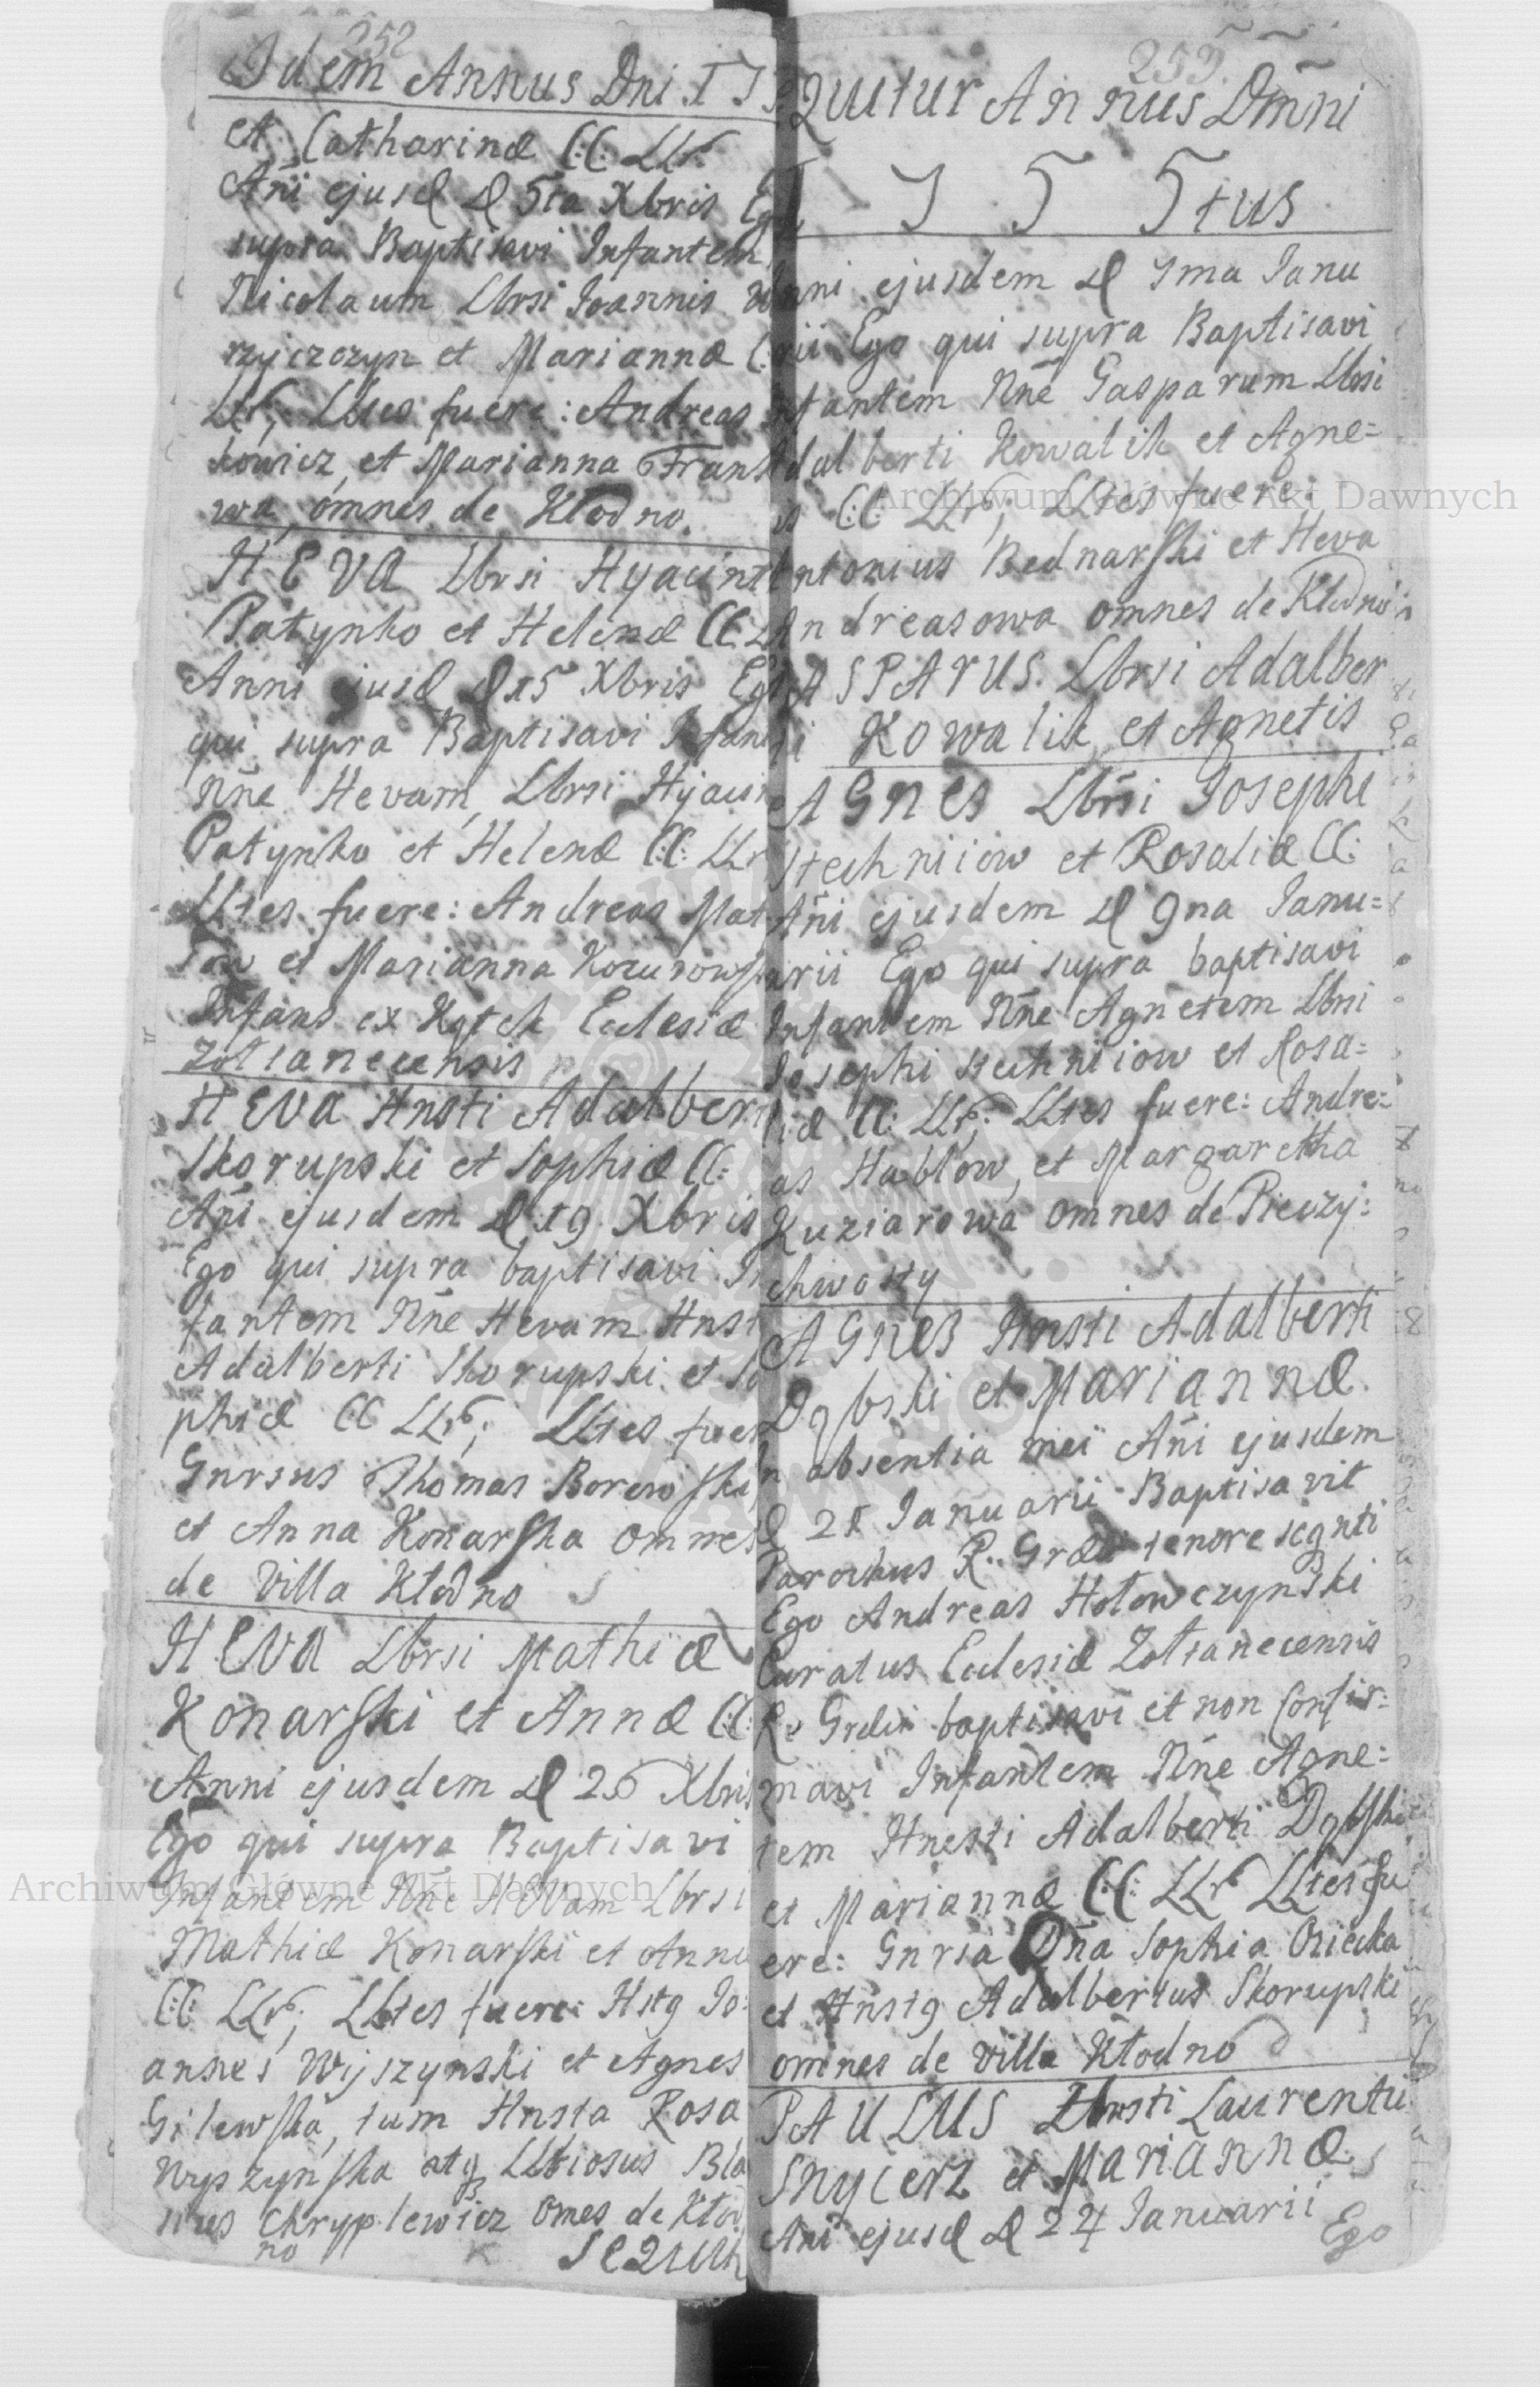 252
Idem Annus Dni 17
et Catharinæ CC: LLr
Añi ejusd D 5ta Xbris Ego
supra Baptisavi Infantem
Nicolaum Lbrsi Joannis
rzyczczyn et Mariannæ C:
LLr, LLtes fuere: Andreas
kowicz, et Marianna Frans
wa, omnes de Kłodno.
HEVA Lbrsi Hyacint
Patynko et Helenæ CC: L
Anni ejusd D 15 Xbris Ego
qui supra Baptisavi Infan
Nñe Hevam, Lbrsi Hyacin
Patynko et Helenæ CC: LLr
LLtes fuere: Andreas Mat
et Marianna
Infans ex Ecclesiæ
Zoltanecensis
HEVA Hnsti Adalber
Skorupski et Sophiæ CC:
Añi ejusdem D 19 Xbris
Ego qui supra baptisavi In
fantem Nñe Hevam Hnst
Adalberti Skorupski et So
phiæ CC LLr; LLtes fuer
Gnrsus Thomas Borewski
et Anna Konarska omnes
de Villa Kłodno
HEVA Lbrsi Mathiæ
Konarski et Annæ CC:
Anni ejusdem D 26 Xbris
Ego qui supra Baptisavi
Infantem Nñe Hevam Lbrsi
Mathiæ Konarski et Annæ
CC: LLr; LLtes fuere: Hstg Jo:
annes Wijszynski et Agnes
Gilewska, tum Hnsta Rosa
Wyszynska atq LLtiosus Bla
sius Chryplewicz omes de Kłod
no
SEQUIU
255.
quitur Annus Dm̃ni
1 7 5 5tus
Anni ejusdem D 1ma Janu
arii Ego qui supra Baptisavi
Infantem Nñe Gasparum Lbrsi
Adalberti Kowalik et Agne=
is CC: LLr, LLtes fuere:
Antonius Bednarski et Heva
Andreasowa omnes de Kłodno
GASPARUS Lbrsi Adalber
ti Kowalik et Agnetis
AGNES Lbrsi Josephi
Stechniiow et Rosaliæ CC:
Añi ejusdem D 9na Janu=
arii Ego qui supra baptisavi
Infantem Nñe Agnetem Lbrsi
Josephi Stechniiow et Rosa=
liæ CC: LLr; LLtes fuere: Andre=
as Hablow, et Margaretha
Kuziarowa omnes de Pieczy:
chwosty
AGNES Hnsti Adalberti
Dąbski et Mariannæ
In absentia mei Añi ejusdem
D 21 Januarii Baptisavit
Parochus R. tenore seqnti
Ego Andreas Hołowczynski
Curatus Ecclesiæ Zoltanecensis
baptisavi et non Confir=
mavi Infantem Nñe Agne=
tem Hnesti Adalberti Dąbski
et Mariannæ CC: LLr LLtes fu
ere: Gnrsa Dña Sophia
et Hnstg Adalbertus Skorupski
omnes de Villa Kłodno
PAULUS Hnsti Laurentii
Snycerz et Mariannæ
Añi ejusd D 24 Januarii
Ego
Archiwum Główne Akt Dawnych
Archiwum Główne Akt Dawnych